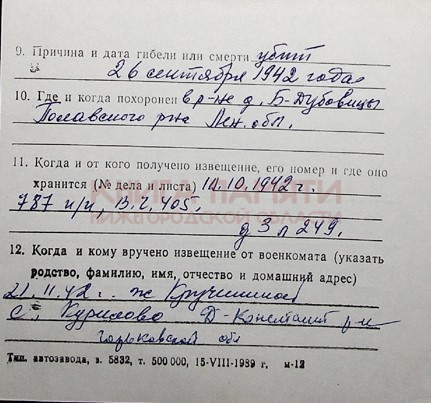 9. Причина и дата гибели или смерти убит
26 сентября 1942 года
10. Где и когда похоронен в р-не д. Б-Дубовицы
Полавского р-на Лен. обл.
11. Когда и от кого получено извещение, его номер и где оно
хранится (№ дела и листа) 14.10.1942 г.
КНИГА ПАМЯТИ
787 п/п, В.Ч. 405,
НИЖЕГОРОДСКОЙ ОБЛАСТИ
д 3 л 249.
12. Когда и кому вручено извещение от военкомата (указать
родство, фамилию, имя, отчество и домашний адрес)
21.11.42 г. ж
с. Курилово Д-Констант р-н
Горьковской обл
Тип. автозавода, з. 5832, т. 500 000, 15-VIII-1989 г. м-12